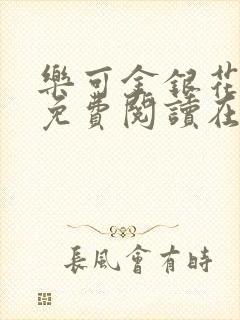 樂可金銀花
免費閱讀在
長風會有時